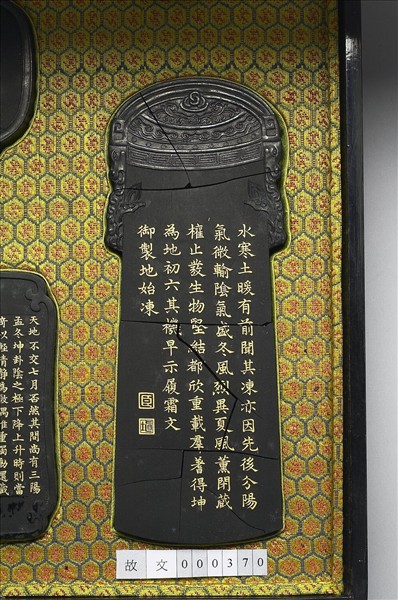 水寒土暖有前聞其凍亦因先後分陽
氣微輸陰氣盛冬風烈異夏風薰閉藏
權止發生物堅結都欣重載羣著得坤
為地初六其機早示履霜文
御製地始凍
臣
天地不交七月否然其間尚有三陽
孟冬坤卦陰之極下降上升時則當
故文000370